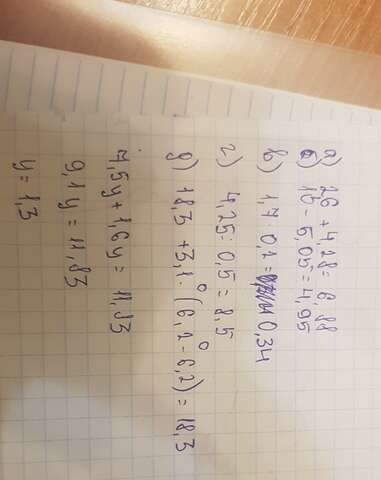 а) 2,6 + 4,28 = 6,88
б) 10 - 5,05 = 4,95
в) 1,7 · 0,2 = 0,34
г) 4,25 : 0,5 = 8,5
0 0
д) 18,3 + 3,1 · (6,2 - 6,2) = 18,3
7,5y + 1,6y = 11,83
9,1y = 11,83
y = 1,3